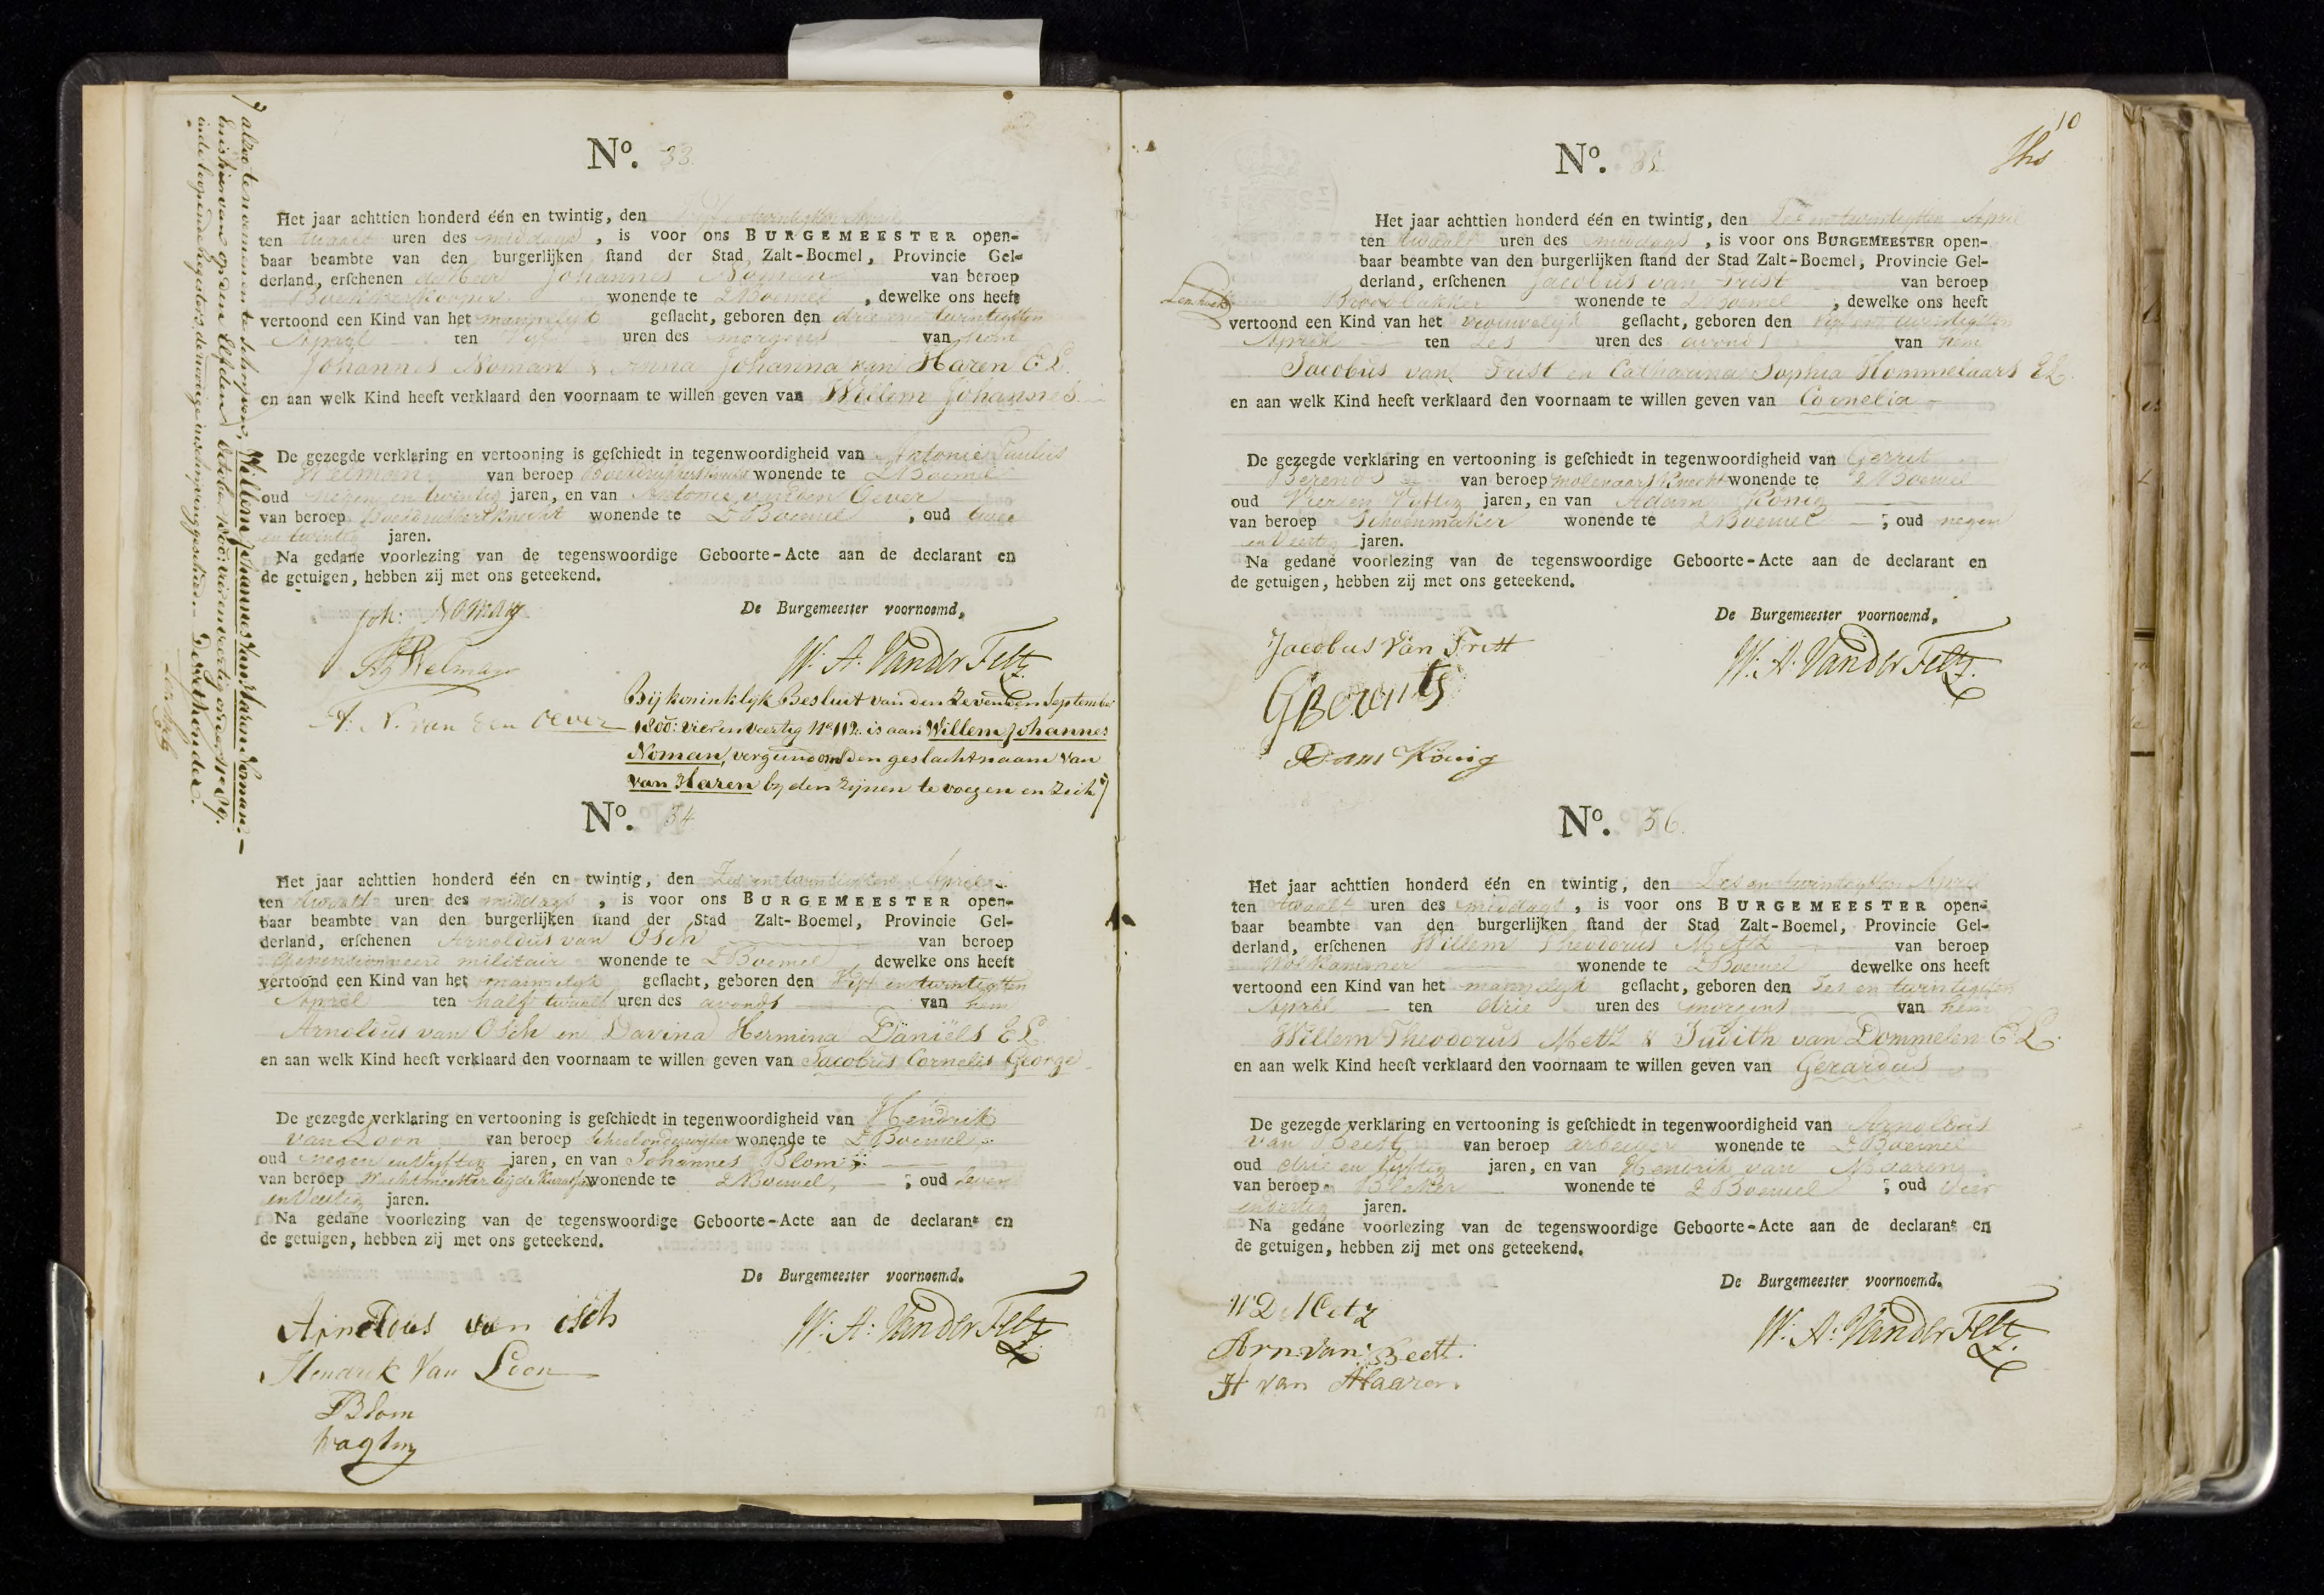 No. 33.
Het jaar achttien honderd één en twintig, den Vijf en twintigsten April
ten twaalf uren des middags, is voor ons BURGEMEESTER open-
baar beambte van den burgerlijken ſtand der Stad Zalt-Boemel, Provincie Gel-
derland, erſchenen de Heer Johannes Noman van beroep
Boekverkooper wonende te ZBoemel, dewelke ons heeft
vertoond een Kind van het mannelijk geſlacht, geboren den drie en twintigsten
April ten vijf uren des morgens van hem
Johannes Noman & Anna Johanna van Haren E L.
en aan welk Kind heeft verklaard den voornaam te willen geven van Willem Johannes
De gezegde verklaring en vertooning is geſchiedt in tegenwoordigheid van Antonie Paulus
Welman van beroep Boekdrukkersknecht wonende te ZBoemel
oud negen en twintig jaren, en van Antonie van den Oever
van beroep Boekdrukkersknecht wonende te ZBoemel, oud twee
en twintig jaren.
Na gedane voorlezing van de tegenswoordige Geboorte-Acte aan de declarant en
de getuigen, hebben zij met ons geteekend.
De Burgemeester voornoemd,
Joh: Noman
W. A. Vander Feltz.
Welman
A. N. van den oever
Bij koninklijk Besluit van den Zevenden September
1800: vier en veertig No 112. is aan Willem Johannes
Noman, vergund om den geslachtnaam van
van Haren by den zijnen te voegen en zich
alzoo te noemen en te schrijven, Willem Johannes van Haren Noman.—
en is hiervan op den Elfden October 1800: vier en veertig onder No 89.
in de loopende Registers, de nodige inschrijving geschied.— De Archivaris.
No. 34
Het jaar achttien honderd één en twintig, den Zes en twintigsten April
ten twaalf uren des middags, is voor ons BURGEMEESTER open-
baar beambte van den burgerlijken ſtand der Stad Zalt-Boemel, Provincie Gel-
derland, erſchenen Arnoldus van Osch van beroep
Gepensioneerd militair wonende te ZBoemel dewelke ons heeft
vertoond een Kind van het mannelijk geſlacht, geboren den Vijf en twintigsten
April ten half twaalf uren des avonds van hem
Arnoldus van Osch en Davina Hermina Daniëls E L.
en aan welk Kind heeft verklaard den voornaam te willen geven van Jacobus Cornelis George
De gezegde verklaring en vertooning is geſchiedt in tegenwoordigheid van Hendrik
van Loon van beroep Schoolonderwijzer wonende te ZBoemel,
oud negen en vijftig jaren, en van Johannes Blom
van beroep Wachtmeester bij de Kurassiers wonende te ZBoemel, oud Zeven
en Veertig jaren.
Na gedane voorlezing van de tegenswoordige Geboorte-Acte aan de declarant en
de getuigen, hebben zij met ons geteekend.
De Burgemeester voornoemd.
Arnoldus van osch
W. A. Vander Feltz.
Hendrik Van Loon
Blom
wagtm
10
No. 35
Het jaar achttien honderd één en twintig, den Zes en twintigsten April
ten twaalf uren des middags, is voor ons BURGEMEESTER open-
baar beambte van den burgerlijken ſtand der Stad Zalt-Boemel, Provincie Gel-
derland, erſchenen Jacobus van Frist van beroep
Broodbakker wonende te ZBoemel, dewelke ons heeft
vertoond een Kind van het vrouwelijk geſlacht, geboren den Vijf en twintigsten
April ten Zes uren des avonds van hem
Jacobus van Frist en Catharina Sophia Hommelaars E L.
en aan welk Kind heeft verklaard den voornaam te willen geven van Cornelia
De gezegde verklaring en vertooning is geſchiedt in tegenwoordigheid van Gerrit
Berends van beroep molenaars Knecht wonende te ZBoemel
oud Vier en Vijftig jaren, en van Adam König
van beroep Schoenmaker wonende te ZBoemel, oud negen
en Veertig jaren.
Na gedane voorlezing van de tegenswoordige Geboorte-Acte aan de declarant en
de getuigen, hebben zij met ons geteekend.
De Burgemeester voornoemd,
Jacobus Van Frist
W. A. Vander Feltz.
GBerents
König
No. 36.
Het jaar achttien honderd één en twintig, den Zes en twintigsten April
ten twaalf uren des middags, is voor ons BURGEMEESTER open-
baar beambte van den burgerlijken ſtand der Stad Zalt-Boemel, Provincie Gel-
derland, erſchenen Willem Theodorus Metz van beroep
Wolkammer wonende te ZBoemel dewelke ons heeft
vertoond een Kind van het mannelijk geſlacht, geboren den Zes en twintigsten
April ten drie uren des morgens van hem
Willem Theodorus Metz & Judith van Dommelen E L.
en aan welk Kind heeft verklaard den voornaam te willen geven van Gerardus
De gezegde verklaring en vertooning is geſchiedt in tegenwoordigheid van Arnoldus
van Beest van beroep arbeider wonende te ZBoemel
oud drie en vijftig jaren, en van Hendrik van Maaren
van beroep Bleker wonende te ZBoemel, oud Vier
en dertig jaren.
Na gedane voorlezing van de tegenswoordige Geboorte-Acte aan de declarant en
de getuigen, hebben zij met ons geteekend.
De Burgemeester voornoemd.
W D Metz
W. A. Vander Feltz.
Arn van Beest.
H van Maaren.